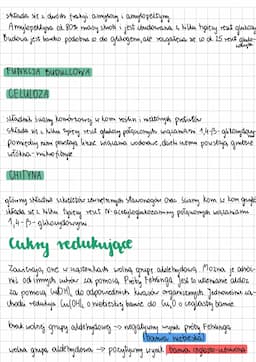 składa się z dwóch frakcji amylozy i amylopektyny
Amylopektyna ok 80% masy skrobi i jest zbudowana z kilku tysięcy reszt glukozy
budowa jest bardzo podobna do glikogenu, ale rozgałęzia się co ok 25 reszt
FUNKCJA BUDULCOWA
CELULOZA
składnik ściany komórkowej w kom roślin i niektórych protistów
składa się z kilku tysięcy reszt glukozy połączonych wiązaniami 1,4-β-glikozydowymi
pomiędzy nimi powstają liczne wiązania wodorowe, dzięki czemu powstają grubsze
włókna - mikrofibryle
CHITYNA
główny składnik szkieletów zewnętrznych stawonogów oraz ściany kom w kom grzybów
składa się z kilku tysięcy reszt N-acetyloglukozoaminy połączonych wiązaniami
1,4-β-glikozydowymi
Cukry redukujące
Zawierają one w cząsteczkach wolną grupę aldehydową. Można je odróż-
nić od innych cukrów za pomocą Próby Fehlinga. Jest to utlenianie aldoz
za pomocą Cu(OH)₂ do odpowiednich kwasów organicznych. Jednocześnie za-
chodzi redukcja Cu(OH)₂ o niebieskiej barwie do Cu₂O o ceglastej barwie.
brak wolnej grupy aldehydowej → negatywny wynik próby Fehlinga
barwa niebieska
wolna grupa aldehydowa → pozytywny wynik barwa ceglasto-czerwona